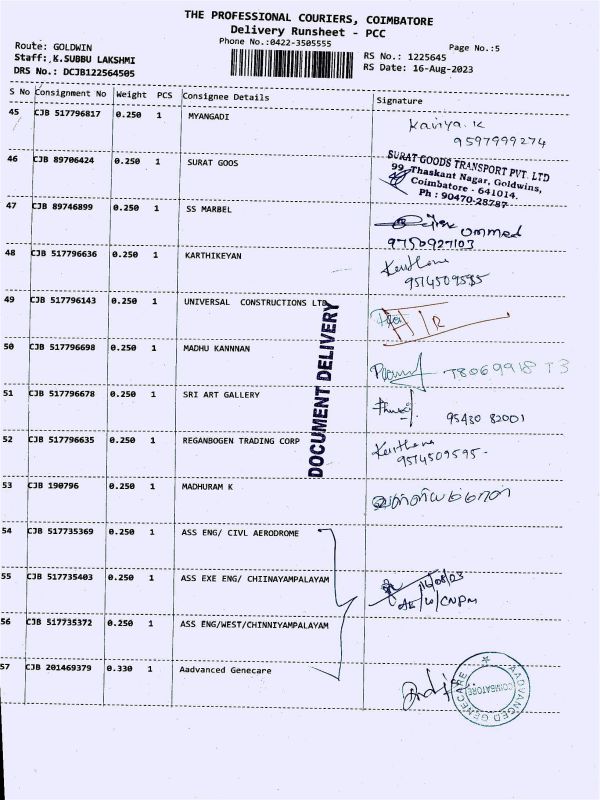 THE PROFESSIONAL COURIERS, COIMBATORE
Delivery Runsheet - PCC
Phone No.:0422-3505555
Page No.:5
Route: GOLDWIN
Staff: K.SUBBU LAKSHMI
DRS No.: DCJB122564505
RS No.: 1225645
RS Date: 16-Aug-2023
S No Consignment No Weight PCS Consignee Details Signature
45 CJB 517796817 0.250 1 MYANGADI
Kaviya.K
9597999274
46 CJB 89706424 0.250 1 SURAT GOOS
SURAT GOODS TRANSPORT PVT. LTD
99, Thaskant Nagar, Goldwins,
Coimbatore - 641014.
Ph : 90470-28787
47 CJB 89746899 0.250 1 SS MARBEL
ommed
9750927103
48 CJB 517796636 0.250 1 KARTHIKEYAN
Keerthana
9514509595
49 CJB 517796143 0.250 1 UNIVERSAL CONSTRUCTIONS LTD
50 CJB 517796698 0.250 1 MADHU KANNNAN
DOCUMENT DELIVERY
51 CJB 517796678 0.250 1 SRI ART GALLERY
95430 82001
52 CJB 517796635 0.250 1 REGANBOGEN TRADING CORP
Keerthana
9514509595-
53 CJB 190796 0.250 1 MADHURAM K
54 CJB 517735369 0.250 1 ASS ENG/ CIVL AERODROME
55 CJB 517735403 0.250 1 ASS EXE ENG/ CHIINAYAMPALAYAM
16/08/23
AE/W/CNPM
56 CJB 517735372 0.250 1 ASS ENG/WEST/CHINNIYAMPALAYAM
57 CJB 201469379 0.330 1 Aadvanced Genecare
AADVANCED GENECARE
COIMBATORE